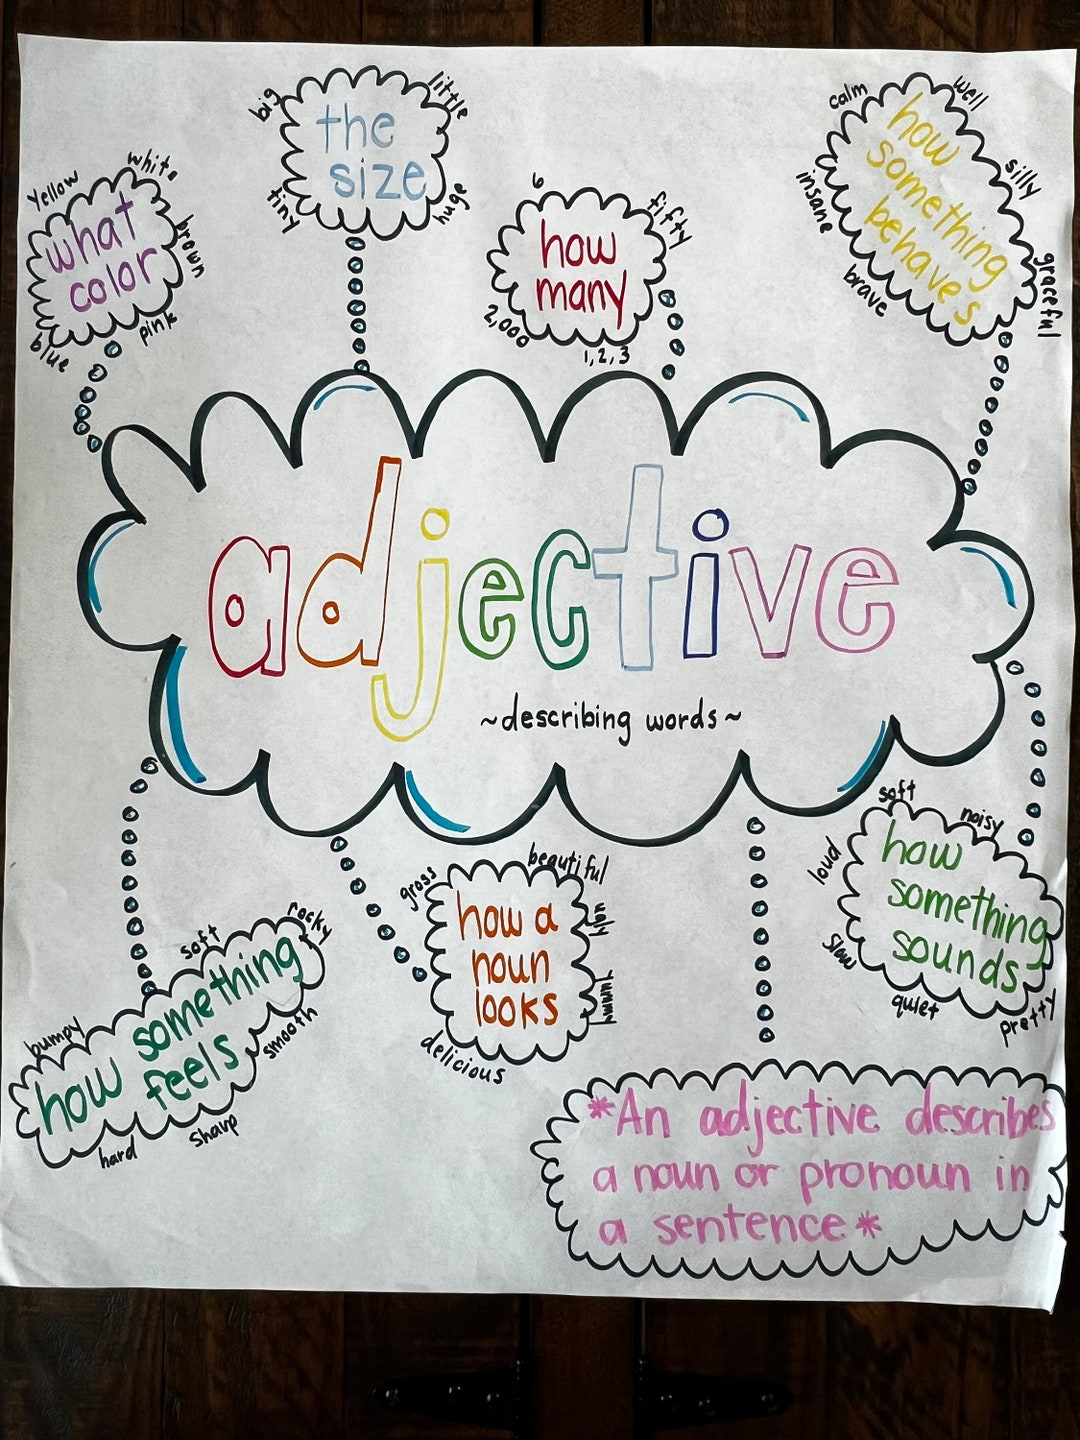 big
little
the
size
tiny
huge
Yellow
white
what
color
brown
blue
pink
6
fifty
how
many
2,000
1, 2, 3
calm
well
how
something
behaves
silly
insane
brave
graceful
adjective
~describing words~
soft
noisy
loud
how
something
sounds
slow
quiet
pretty
gross
beautiful
how a
noun
looks
yummy
delicious
soft
rocky
bumpy
how something
feels
smooth
hard
sharp
*An adjective describes
a noun or pronoun in
a sentence*